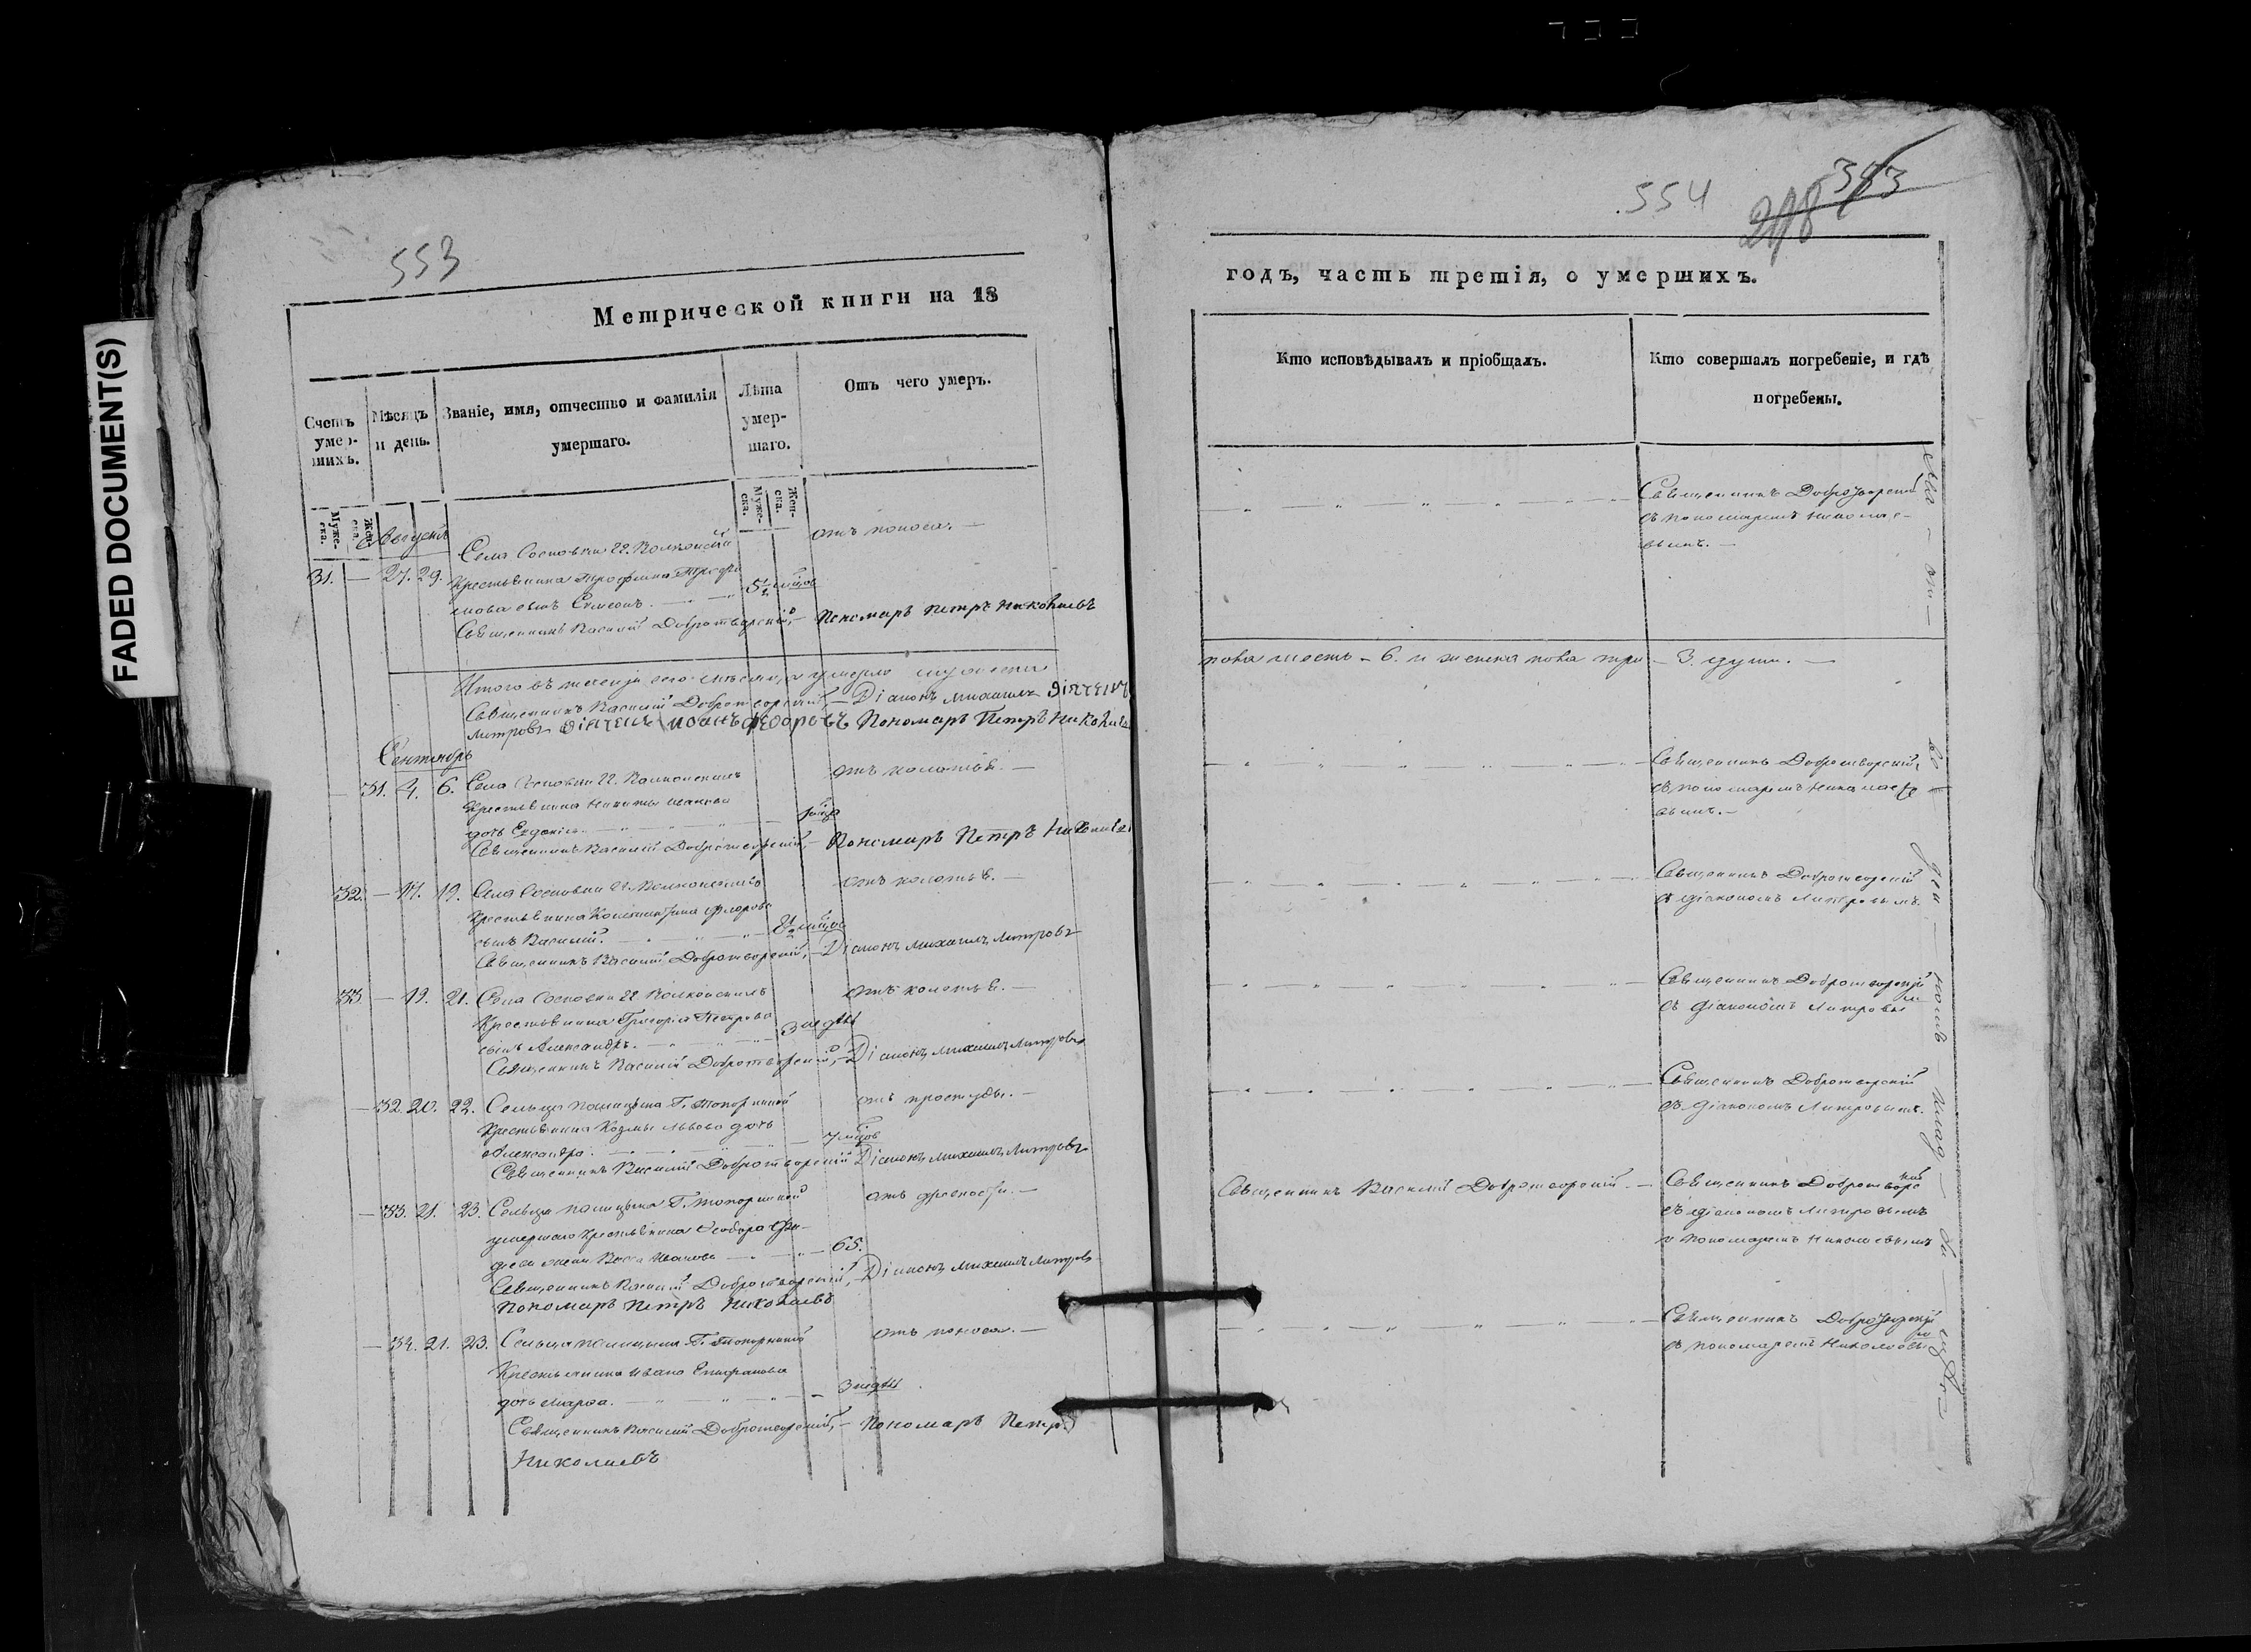 FADED DOCUMENT(S)
553
Метрической книги на 18
Счетъ умер-шихъ.
Мѣсяцъ и день.
Званіе, имя, отчество и фамилія умершаго.
Лѣта умер-шаго.
Отъ чего умеръ.
Муже-ска.
Жен-ска.
Муже-ска.
Жен-ска.
Августъ
Села Сосновки гг. Волконскихъ
отъ поноса. —
31. — 27. 29. крестьянина Трофима Трофи
мова сынъ Симеонъ. — 5½ мѣцов
Священникъ Василій Добротворскій, — Пономарь Петръ Николаевъ
Итого въ теченіи сего мѣсяца умерло мужеска
Священникъ Василій Добротворскій, — Діаконъ Михаилъ
Митровъ Іоаннъ Федоровъ Пономарь Петръ Николаев
Сентябрь
— 31. 4. 6. Села Сосновки гг. Волконскихъ
отъ колотья. —
крестьянина Никиты Иванова
дочь Евдокія. —
Священникъ Василій Добротворскій, — Пономарь Петръ Николаев
32. — 17. 19. Села Сосновки гг. Волконскихъ
отъ колотья. —
крестьянина Константина Флорова
сынъ Василій. — 8½ мѣцов
Священникъ Василій Добротворскій, — Діаконъ Михаилъ Митровъ
33. — 19. 21. Села Сосновки гг. Волконскихъ
отъ колотья. —
крестьянина Григорія Петрова
сынъ Александръ. — 3 недѣли
Священникъ Василій Добротворскій, — Діаконъ Михаилъ Митровъ
— 32. 20. 22. Сельца Поницына Г. Топорниной
отъ простуды. —
крестьянина Козмы Львова дочь
Александра. — 7 мѣцов
Священникъ Василій Добротворскій Діаконъ Михаилъ Митровъ
— 33. 21. 23. Сельца Поницына Г. Топорниной
отъ древности. —
умершаго крестьянина Феодора
жена Васса Иванова — 65.
Священникъ Василій Добротворскій, — Діаконъ Михаилъ Митровъ
Пономарь Петръ Николаевъ
— 34. 21. 23. Сельца Поницына Г. Топорниной
отъ поноса. —
крестьянина Ивана Епифанова
дочь Марфа. — 3 недѣли
Священникъ Василій Добротворскій, — Пономарь Петръ
Николаевъ
554
годъ, часть третія, о умершихъ.
Кто исповѣдывалъ и пріобщалъ.
Кто совершалъ погребеніе, и гдѣ погребены.
Священникъ Добротворскій
съ пономаремъ Николае-
вымъ. —
пола шесть — 6. и женска пола три — 3. души. —
Священникъ Добротворскій,
съ пономаремъ Николае
вымъ. —
Священникъ Добротворскій
съ діакономъ Митровымъ.
Священникъ Добротворскій
съ діакономъ Митровым
Священникъ Добротворскій
съ діакономъ Митровымъ.
Священникъ Василій Добротворскій. — Священникъ Добротворскій
съ діакономъ Митровымъ
и пономаремъ Николаевымъ
Священникъ Добротворскій
съ пономаремъ Николаевым